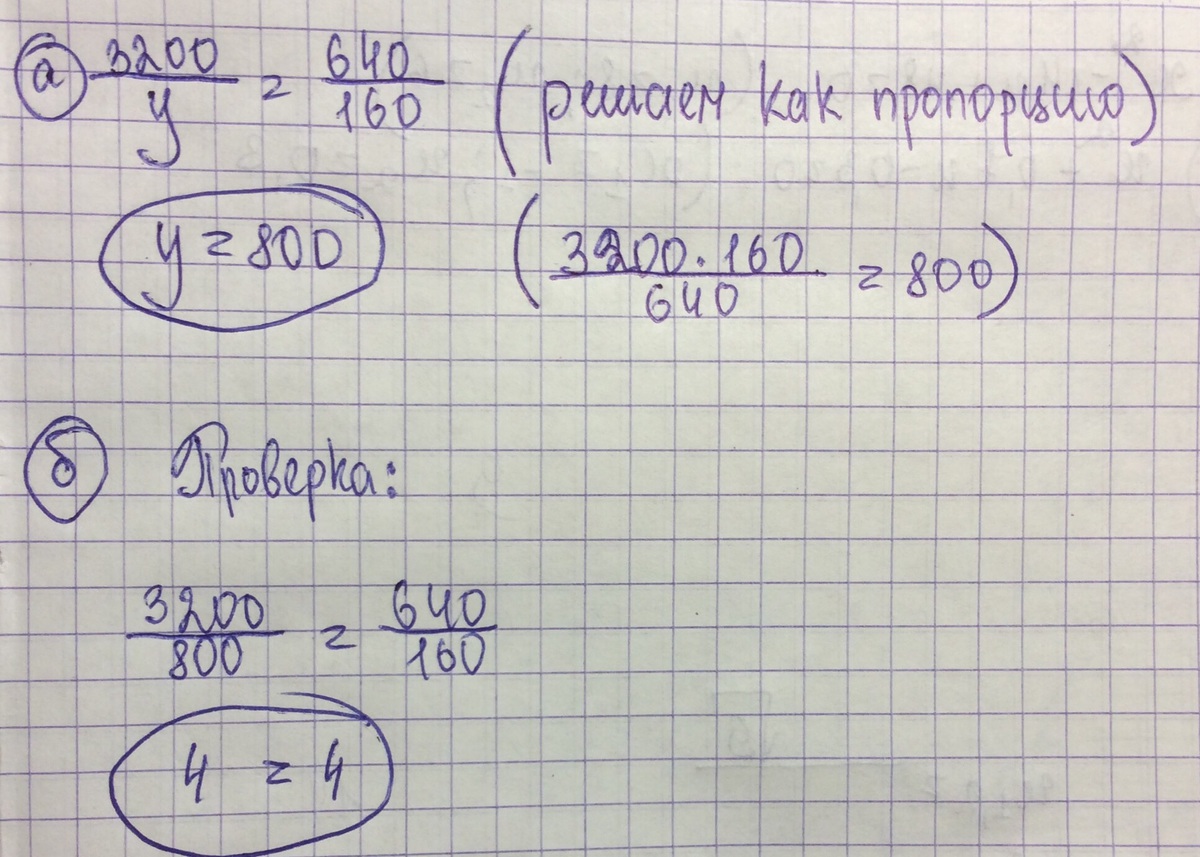 а) 3200/y = 640/160 (решаем как пропорцию)
y = 800 (3200·160/640 = 800)
б) Проверка:
3200/800 = 640/160
4 = 4